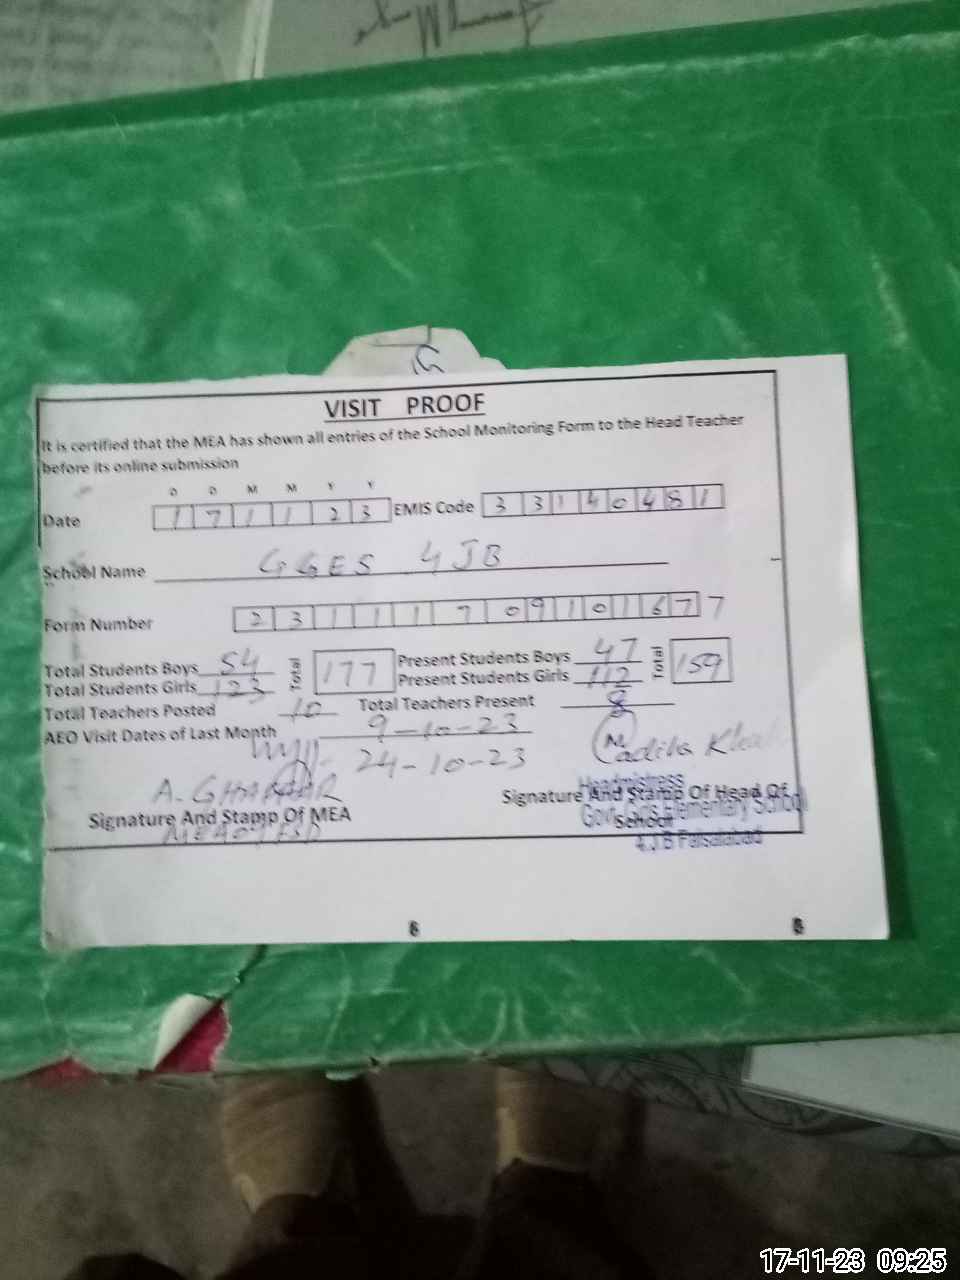 VISIT PROOF
It is certified that the MEA has shown all entries of the School Monitoring Form to the Head Teacher
before its online submission
D D M M Y Y
Date 1 7 1 1 2 3 EMIS Code 3 3 1 4 0 4 8 1
School Name GGES 4 JB
Form Number 2 3 1 1 1 7 0 9 1 0 1 6 7 7
Total Students Boys 54 Total 177 Present Students Boys 47 Total 159
Total Students Girls 123 Present Students Girls 112
Total Teachers Posted 10 Total Teachers Present 8
AEO Visit Dates of Last Month 9-10-23
24-10-23
A. GHAFFAR
Signature And Stamp Of MEA
Signature And Stamp Of Head Of
School
Headmistress
Govt. Girls Elementary School
4 J.B Faisalabad
6
17-11-23 09:25